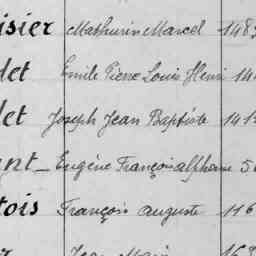 isier Mathurin Marcel 148
det Emile Pierre Louis Henri 14
det Joseph Jean Baptiste 141
ent Eugène François Alphonse 5
tois François Auguste 116
Jean Marie 169